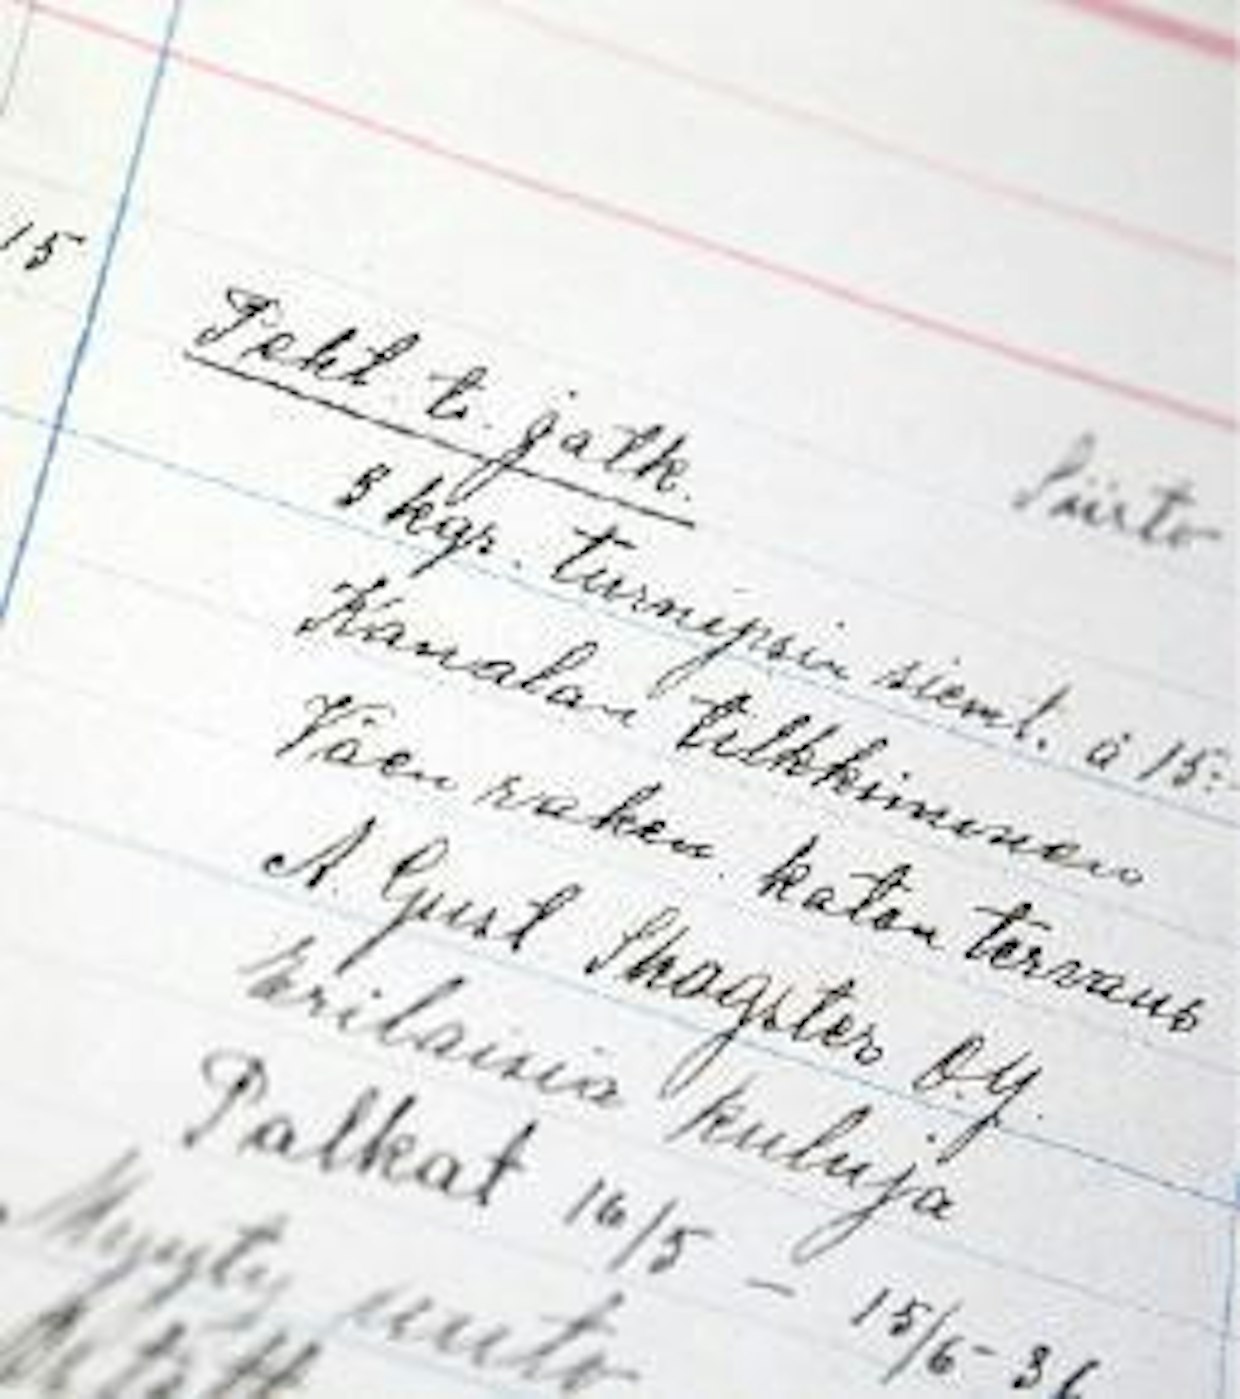 15
Siirto
Tekl. t. jatk.
3 kgr. turnipsin sieml. á 15:-
Kanalan tilkkiminen
Väen raken. katon tervaus
A. Gust Skogster O.Y.
Erilaisia kuluja
Palkat 16/5 - 15/6-36
Myyty